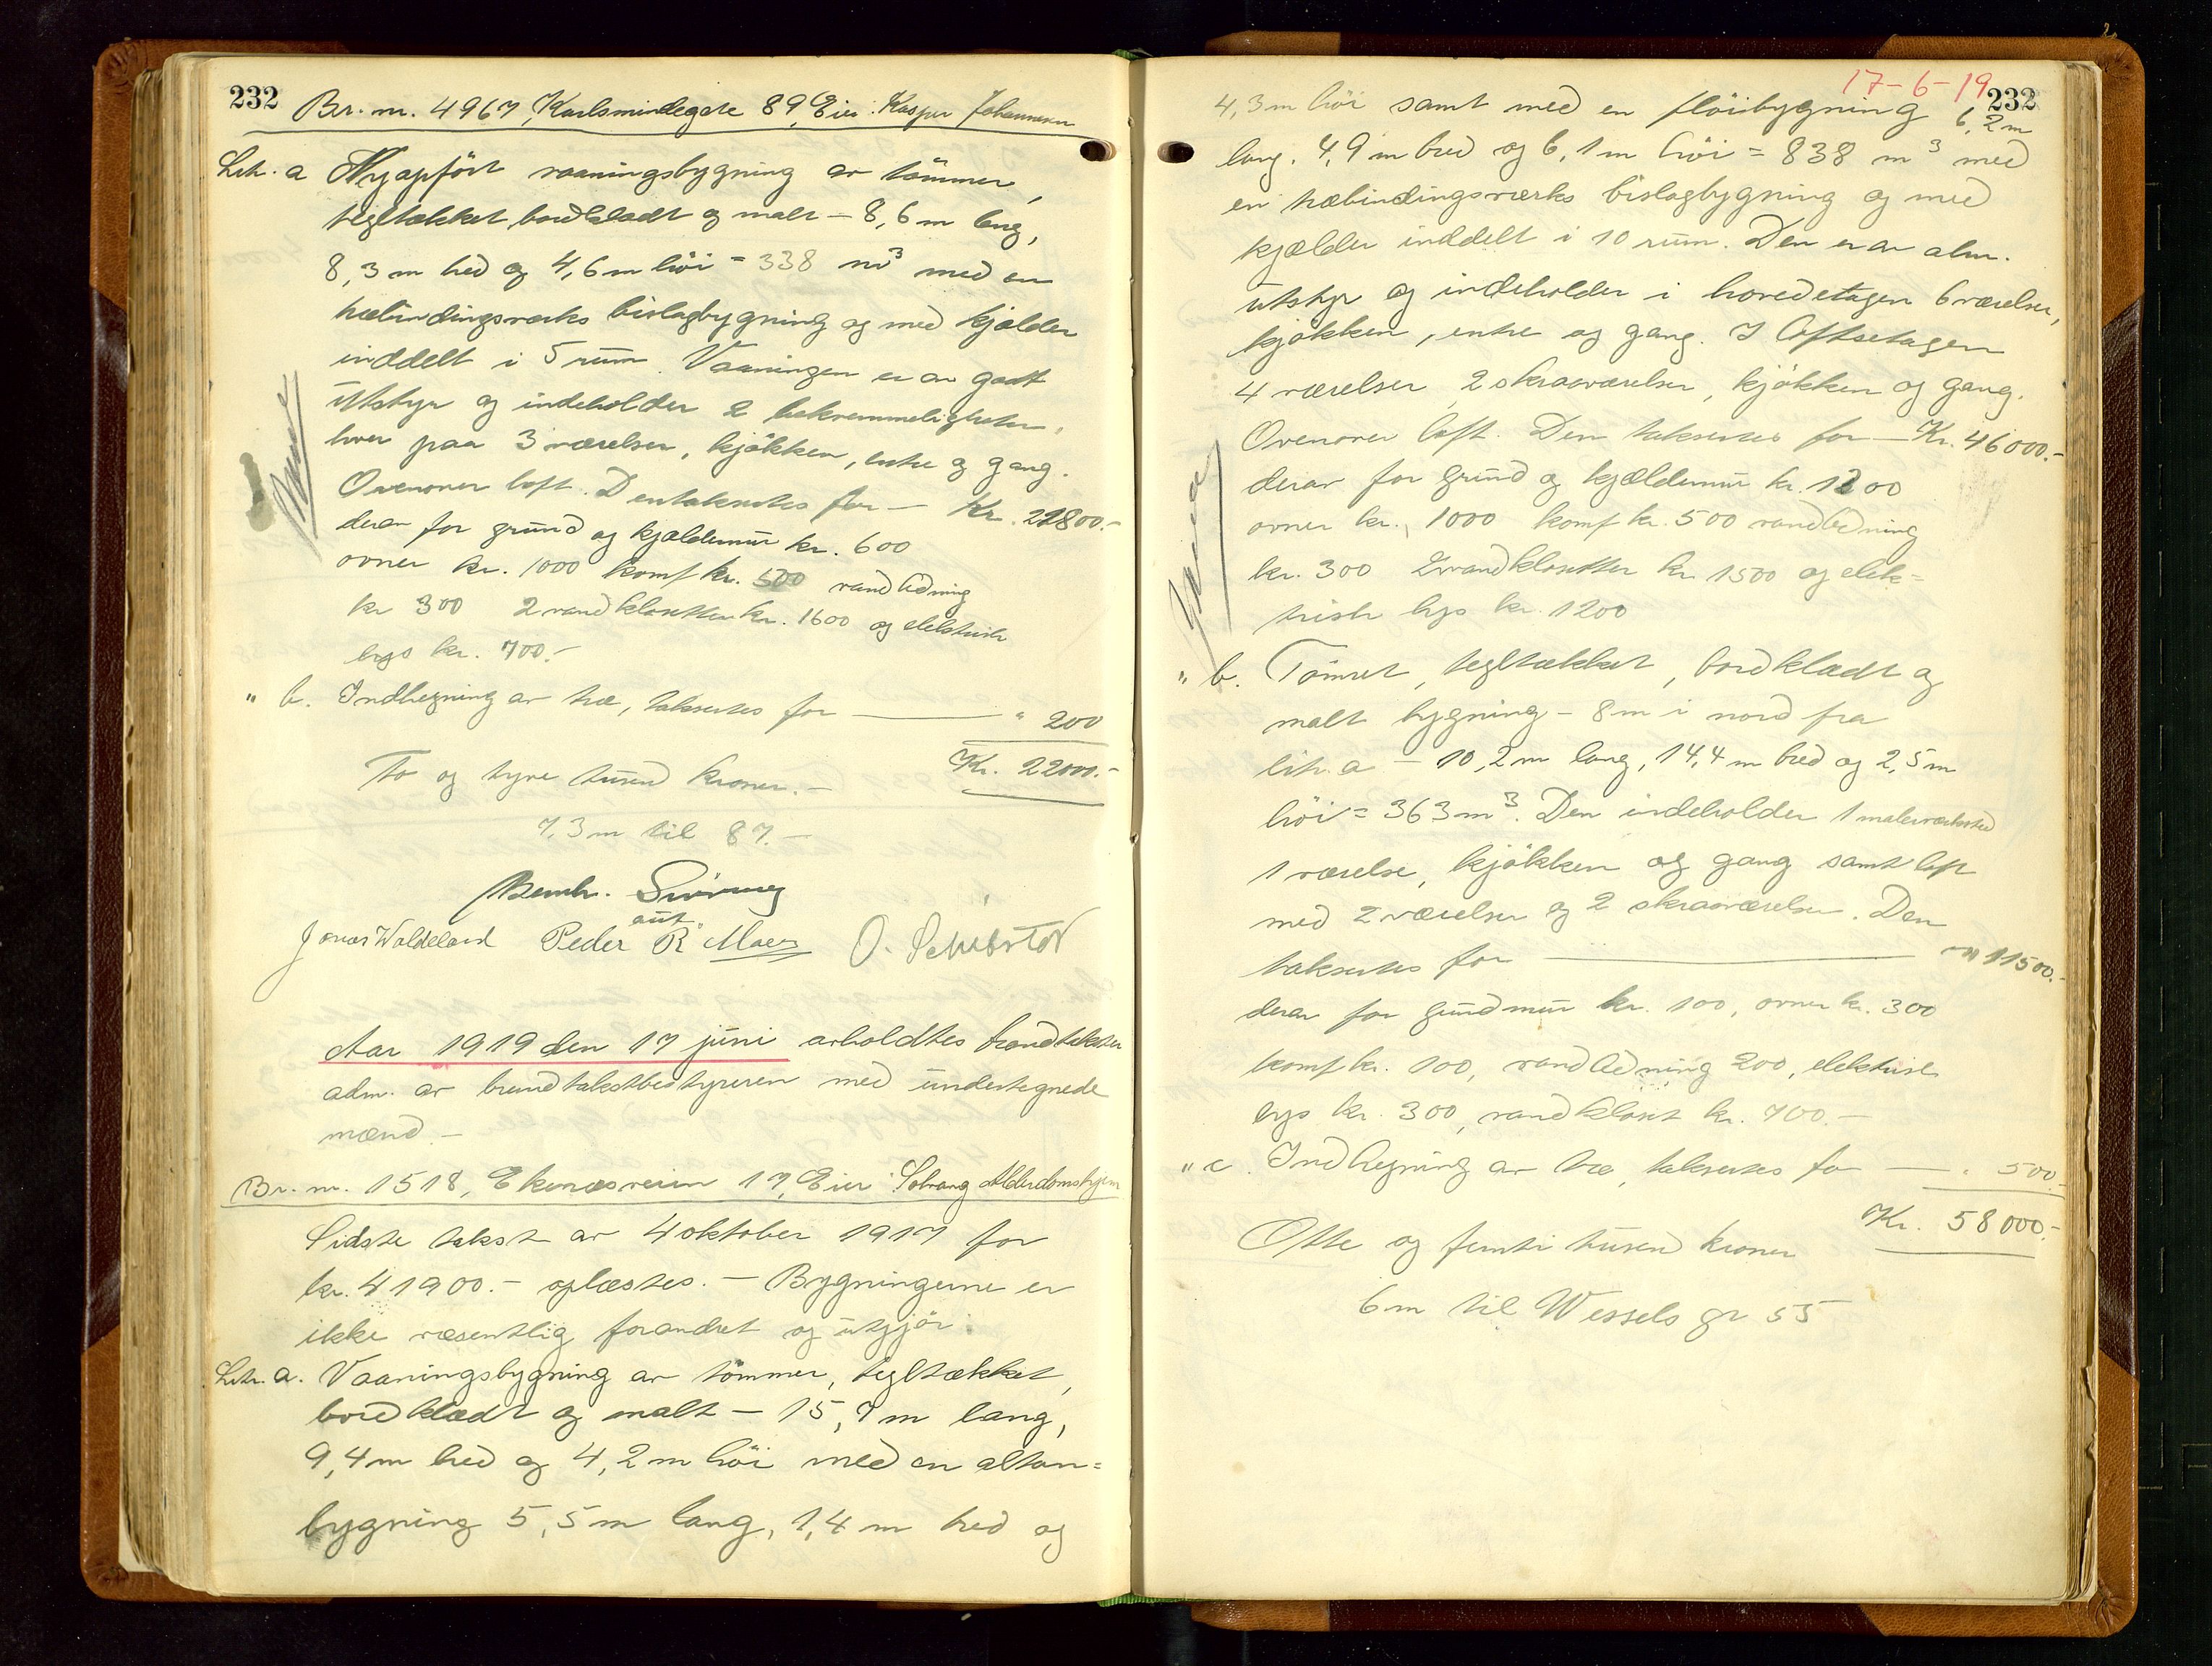 232
Br. nr. 4967, Karlsmindegate 89, Eier: Kasper Johannesen
Litr. a Nyopført vaaningsbygning av tömmer,
tegltækket, bordklædt og malt – 8,6 m lang,
8,3 m bred og 4,6 m höi = 338 m³ med en
træbindingsverks bislagbygning og med kjælder
inddelt i 5 rum. Vaaningen er av godt
utstyr og indeholder 2 bekvemmeligheter,
hver paa 3 værelser, kjökken, entre og gang.
Ovenover loft. Den taksertes for — Kr. 21800.-
derav for grund og kjældermur kr. 600
ovner kr. 1000 komf kr. 500 vandledning
kr 300 2 vandklosetter kr. 1600 og elektrisk
lys kr. 700.-
" b. Indhegning av træ, taksertes for — " 200
Kr. 22000.-
To og tyve tusend kroner.-
7,3 m til 87.-
Bernh.
aut.
Jonas Waldeland Peder R. Maer O. Schibstol
Aar 1919 den 17 juni avholdtes brandtakster
adm. av brandtakstbestyreren med undertegnede
mænd.-
Br. nr. 1518, Ekenæsveien 17, Eier Solvang Alderdomshjem
Sidste takst av 4 oktober 1917 for
kr. 41900.- oplæstes. – Bygningerne er
ikke væsentlig forandret og utgjör:
Litr. a. Vaaningsbygning av tömmer, tegltækket,
bordklædt og malt – 15,7 m lang,
9,4 m bred og 4,2 m höi med en altan=
bygning 5,5 m lang, 1,4 m bred og
17-6-19
232
4,3 m höi samt med en flöibygning 6,2 m
lang, 4,9 m bred og 6,1 m höi = 838 m³ med
en træbindingsverks bislagbygning og med
kjælder inddelt i 10 rum. Den er av alm.
utstyr og indeholder i hovedetagen 6 værelser,
kjökken, entre og gang. I loftsetagen
4 værelser, 2 skraaværelser, kjökken og gang.
Ovenover loft. Den taksertes for — Kr. 46000.-
derav for grund og kjældermur kr. 1200
ovner kr. 1000 komf kr. 500 vandledning
kr. 300 2 vandklosetter kr. 1500 og elek=
trisk lys kr. 1200
" b. Tömret, tegltækket, bordklædt og
malt bygning – 8 m i nord fra
litr. a – 10,2 m lang, 14,4 m bred og 2,5 m
höi = 363 m³. Den indeholder 1 malerverksted
1 værelse, kjökken og gang samt loft
med 2 værelser og 2 skraaværelser. Den
taksertes for — " 11500.-
derav for grundmur kr. 100, ovner kr. 300
komf kr. 100, vandledning 200, elektrisk
lys kr. 300, vandkloset kr. 700.-
" c. Indhegning av træ, taksertes for — " 500.-
Kr. 58000.-
Otte og femti tusend kroner
6 m til Wessels gt 55